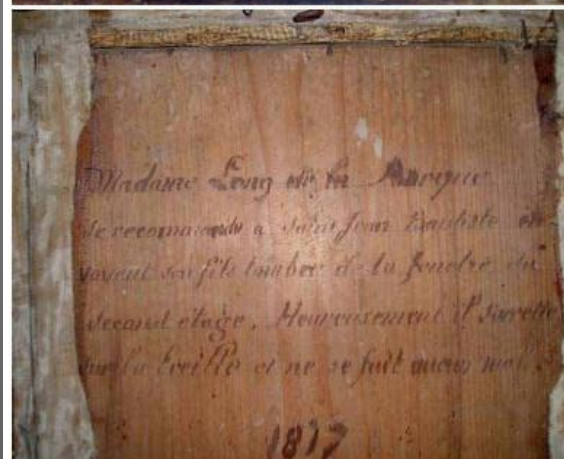 Madame Long de la
se recommande a Saint Jean Baptiste en
voyant son fils tomber de la fenetre du
second étage. Heureusement il s'arrette
sur la treille et ne se fait aucun mal.
18